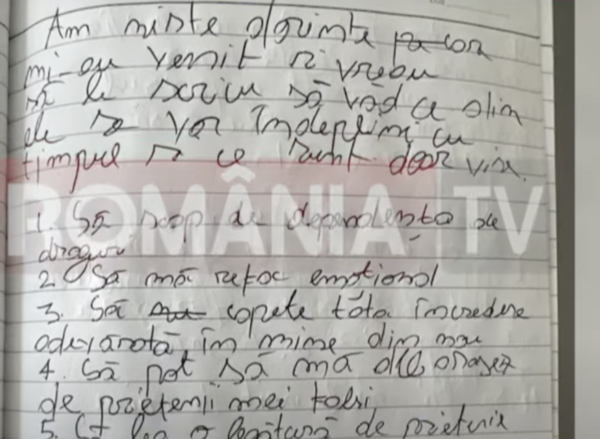 Am niste dorinte pe care
mi-au venit si vreau
să le scriu să văd ce din
ele se vor îndeplini cu
timpul si ce sunt doar vis.
ROMÂNIA TV
1. Să scap de dependenta de
droguri
2. Să mă refac emotional
3. Să capete tóta încredere
adevărată în mine din nou
4. Să pot să mă
de prietenii mei falsi
5. de prietenie